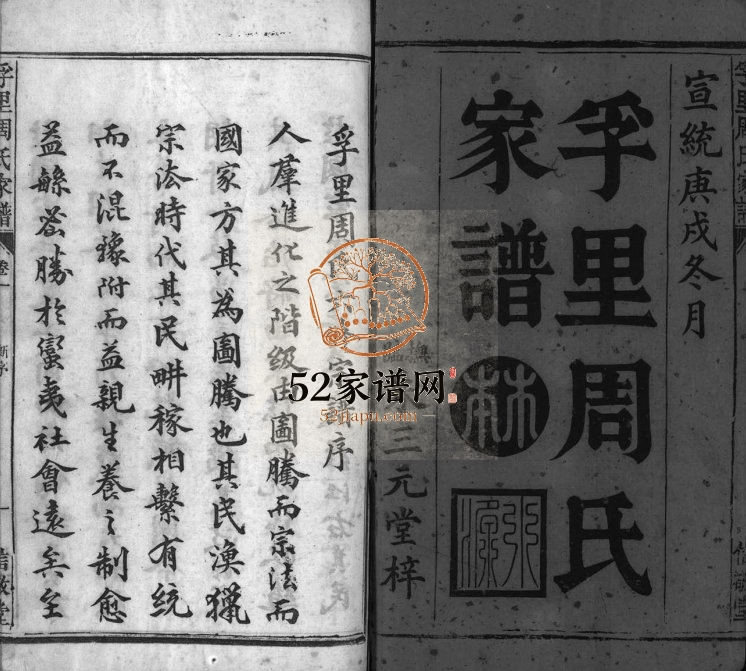 宣統庚戌冬月
孚里周氏
家譜
三元堂梓
孚里周
序
人羣進化之階級古圖騰而宗法而
國家方其為圖騰也其民漁獵
宗法時代其民畊稼相繫有統
而不混豫附而益親生養之制愈
益緐密勝於蠻夷社會遠矣至
孚里周氏家譜
卷一
新序
52家谱网
52jiapu.com